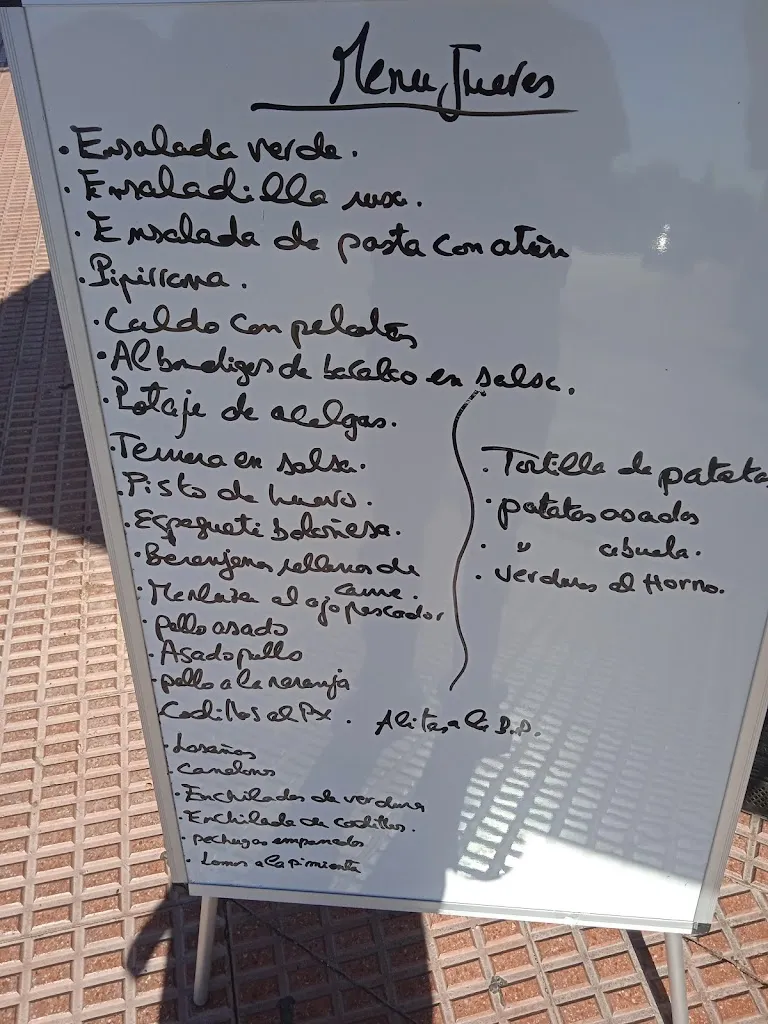 Menu Jueves
· Ensalada verde.
· Ensaladilla rusa.
· Ensalada de pasta con atún
· Pipirrana.
· Caldo con pelotas
· Albondigas de bacalao en salsa.
· Potaje de acelgas.
· Ternera en salsa.
· Pisto de huevo.
· Espagueti boloñesa.
· Berenjenas rellenas de
carne.
· Merluza al ajo pescador
· pollo asado
· Asado pollo
· pollo a la naranja
· Codillos al Px. Alitas a la B.D.
· Lasañas
· Canelones
· Enchiladas de verdura
· Enchilada de codillos.
· pechugas empanadas
· Lomos a la pimienta
· Tortilla de patatas
· patatas asadas
· " abuela.
· Verduras al Horno.